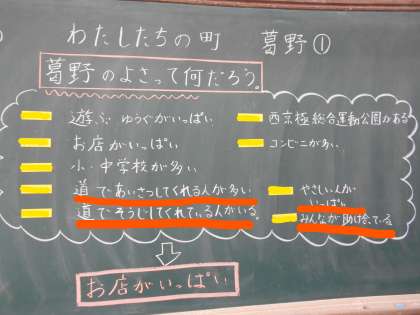 わたしたちの町　葛野①
葛野のよさって何だろう。
遊ぶ ゆうぐがいっぱい
お店がいっぱい
小・中学校が多い
道であいさつしてくれる人が多い
道でそうじしてくれている人がいる。
西京極総合運動公園がある
コンビニが多い
やさしい人が
いっぱい
みんなが助け合っている
お店がいっぱい